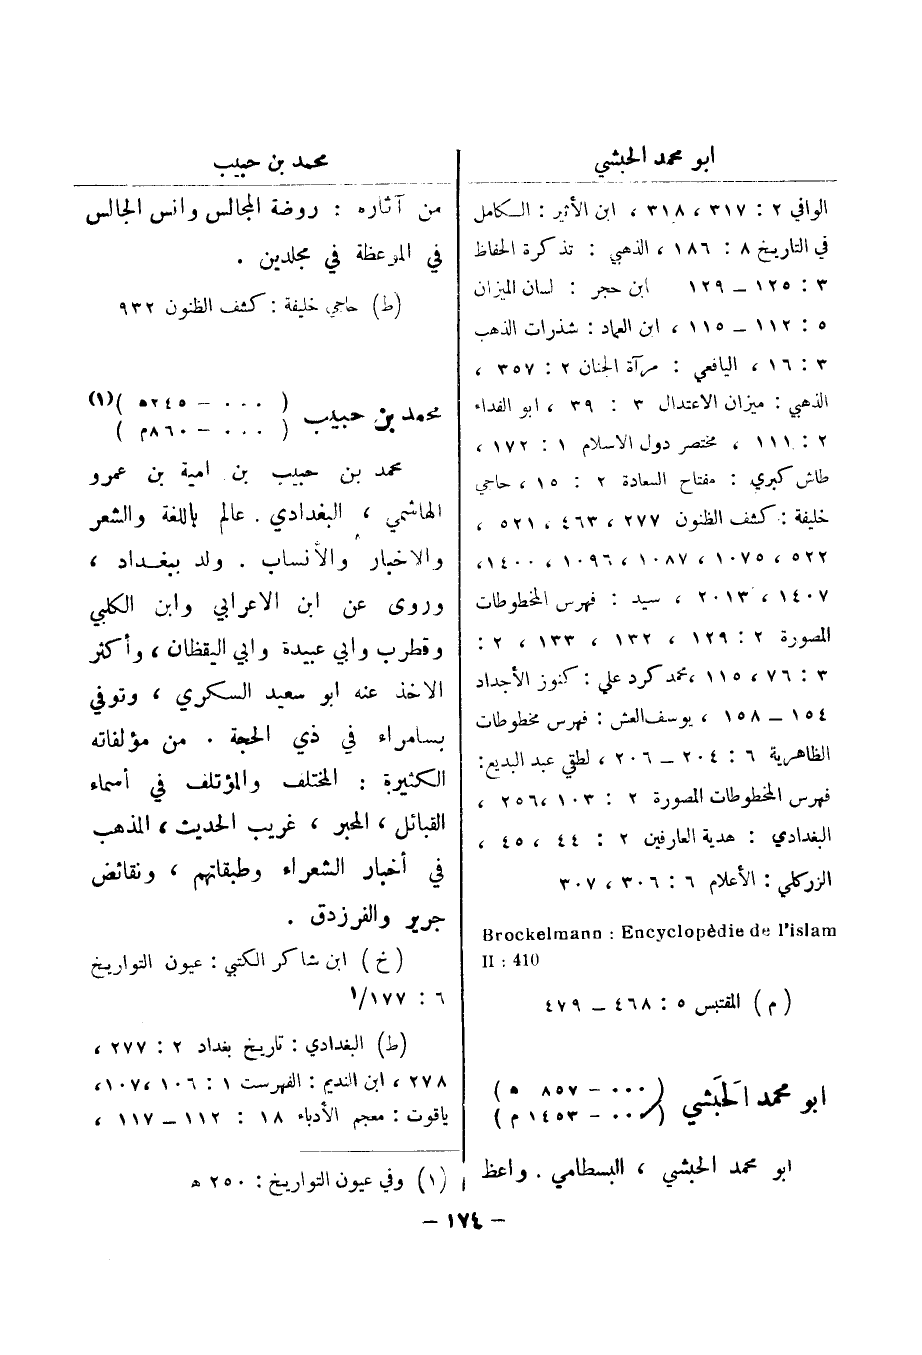 ابو محمد الحبشي
الوافي ٢ : ٣١٧ ، ٣١٨ ، ابن الأثير : الكامل
في التاريخ ٨ : ١٨٦ ، الذهبي : تذكرة الحفاظ
٣ : ١٢٥ – ١٢٩ ابن حجر : لسان الميزان
٥ : ١١٢ – ١١٥ ، ابن العماد : شذرات الذهب
٣ : ١٦ ، اليافعي : مرآة الجنان ٢ : ٣٥٧ ،
الذهبي : ميزان الاعتدال ٣ : ٣٩ ، ابو الفداء
٢ : ١١١ ، مختصر دول الاسلام ١ : ١٧٢ ،
طاش كبري : مفتاح السعادة ٢ : ١٥ ، حاجي
خليفة : كشف الظنون ٢٧٧ ، ٤٦٣ ، ٥٢١ ،
٥٢٢ ، ١٠٧٥ ، ١٠٨٧ ، ١٠٩٦ ، ١٤٠٠ ،
١٤٠٧ ، ٢٠١٣ ، سيد : فهرس المخطوطات
المصورة ٢ : ١٢٩ ، ١٣٢ ، ١٣٣ ، ٢ :
٣ : ٧٦ ، ١١٥ ، محمد كرد علي : كنوز الأجداد
١٥٤ – ١٥٨ ، يوسف العش : فهرس مخطوطات
الظاهرية ٦ : ٢٠٤ – ٢٠٦ ، لطفي عبد البديع :
فهرس المخطوطات المصورة ٢ : ١٠٣ ، ٢٥٦ ،
البغدادي : هدية العارفين ٢ : ٤٤ ، ٤٥ ،
الزركلي : الأعلام ٦ : ٣٠٦ ، ٣٠٧
Brockelmann : Encyclopèdie de l'islam
II : 410
( م ) المقتبس ٥ : ٤٦٨ – ٤٧٩
ابو محمد الَحَبَشي ( ٠٠٠ – ٨٥٧ ه )
( ٠٠٠ – ١٤٥٣ م )
ابو محمد الحبشي ، البسطامي . واعظ
محمد بن حبيب
من آثاره : روضة المجالس وانس الجالس
في الموعظة في مجلدين .
( ط ) حاجي خليفة : كشف الظنون ٩٣٢
محمد بن حبيب ( ٠٠٠ – ٢٤٥ه ) (١)
( ٠٠٠ – ٨٦٠م )
محمد بن حبيب بن امية بن عمرو
الهاشمي ، البغدادي . عالم باللغة والشعر
والاخبار والأنساب . ولد ببغداد ،
وروى عن ابن الاعرابي وابن الكلبي
وقطرب وابي عبيدة وابي اليقظان ، وأكثر
الاخذ عنه ابو سعيد السكري ، وتوفي
بسامراء في ذي الحجة . من مؤلفاته
الكثيرة : المختلف والمؤتلف في أسماء
القبائل ، المحبر ، غريب الحديث ، المذهب
في أخبار الشعراء وطبقاتهم ، ونقائض
جرير والفرزدق .
( خ ) ابن شاكر الكتبي : عيون التواريخ
٦ : ١٧٧/١
( ط ) البغدادي : تاريخ بغداد ٢ : ٢٧٧ ،
٢٧٨ ، ابن النديم : الفهرست ١ : ١٠٦ ، ١٠٧ ،
ياقوت : معجم الأدباء ١٨ : ١١٢ – ١١٧ ،
( ١ ) وفي عيون التواريخ : ٢٥٠ ه
– ١٧٤ –